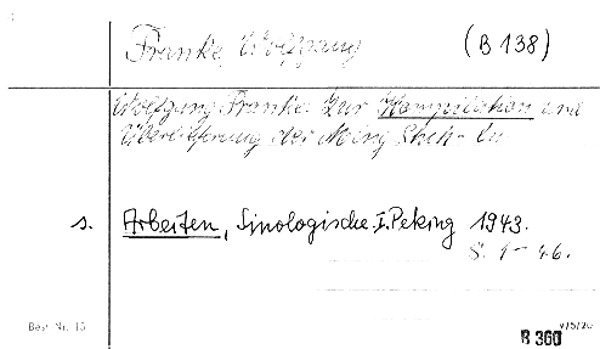 Franke, Wolfgang (B 138)
Wolfgang Franke: Zur Kompilation und
Überlieferung der Ming Shih-lu
s. Arbeiten, Sinologische. I. Peking 1943.
S. 1-46.
Best Nr. 15
B 360